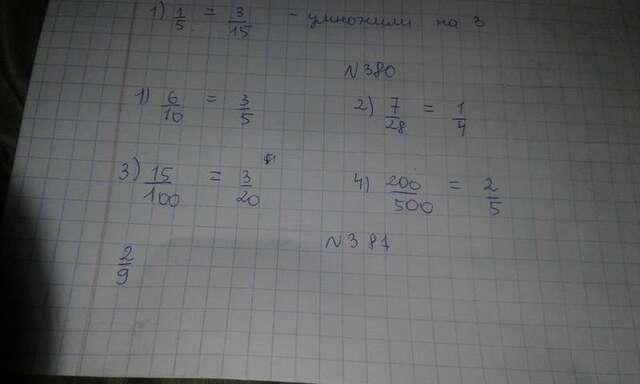 1) 1/5 = 3/15 - умножили на 3
N 380
1) 6/10 = 3/5 2) 7/28 = 1/4
3) 15/100 = 3/20 4) 200/500 = 2/5
N 381
2/9